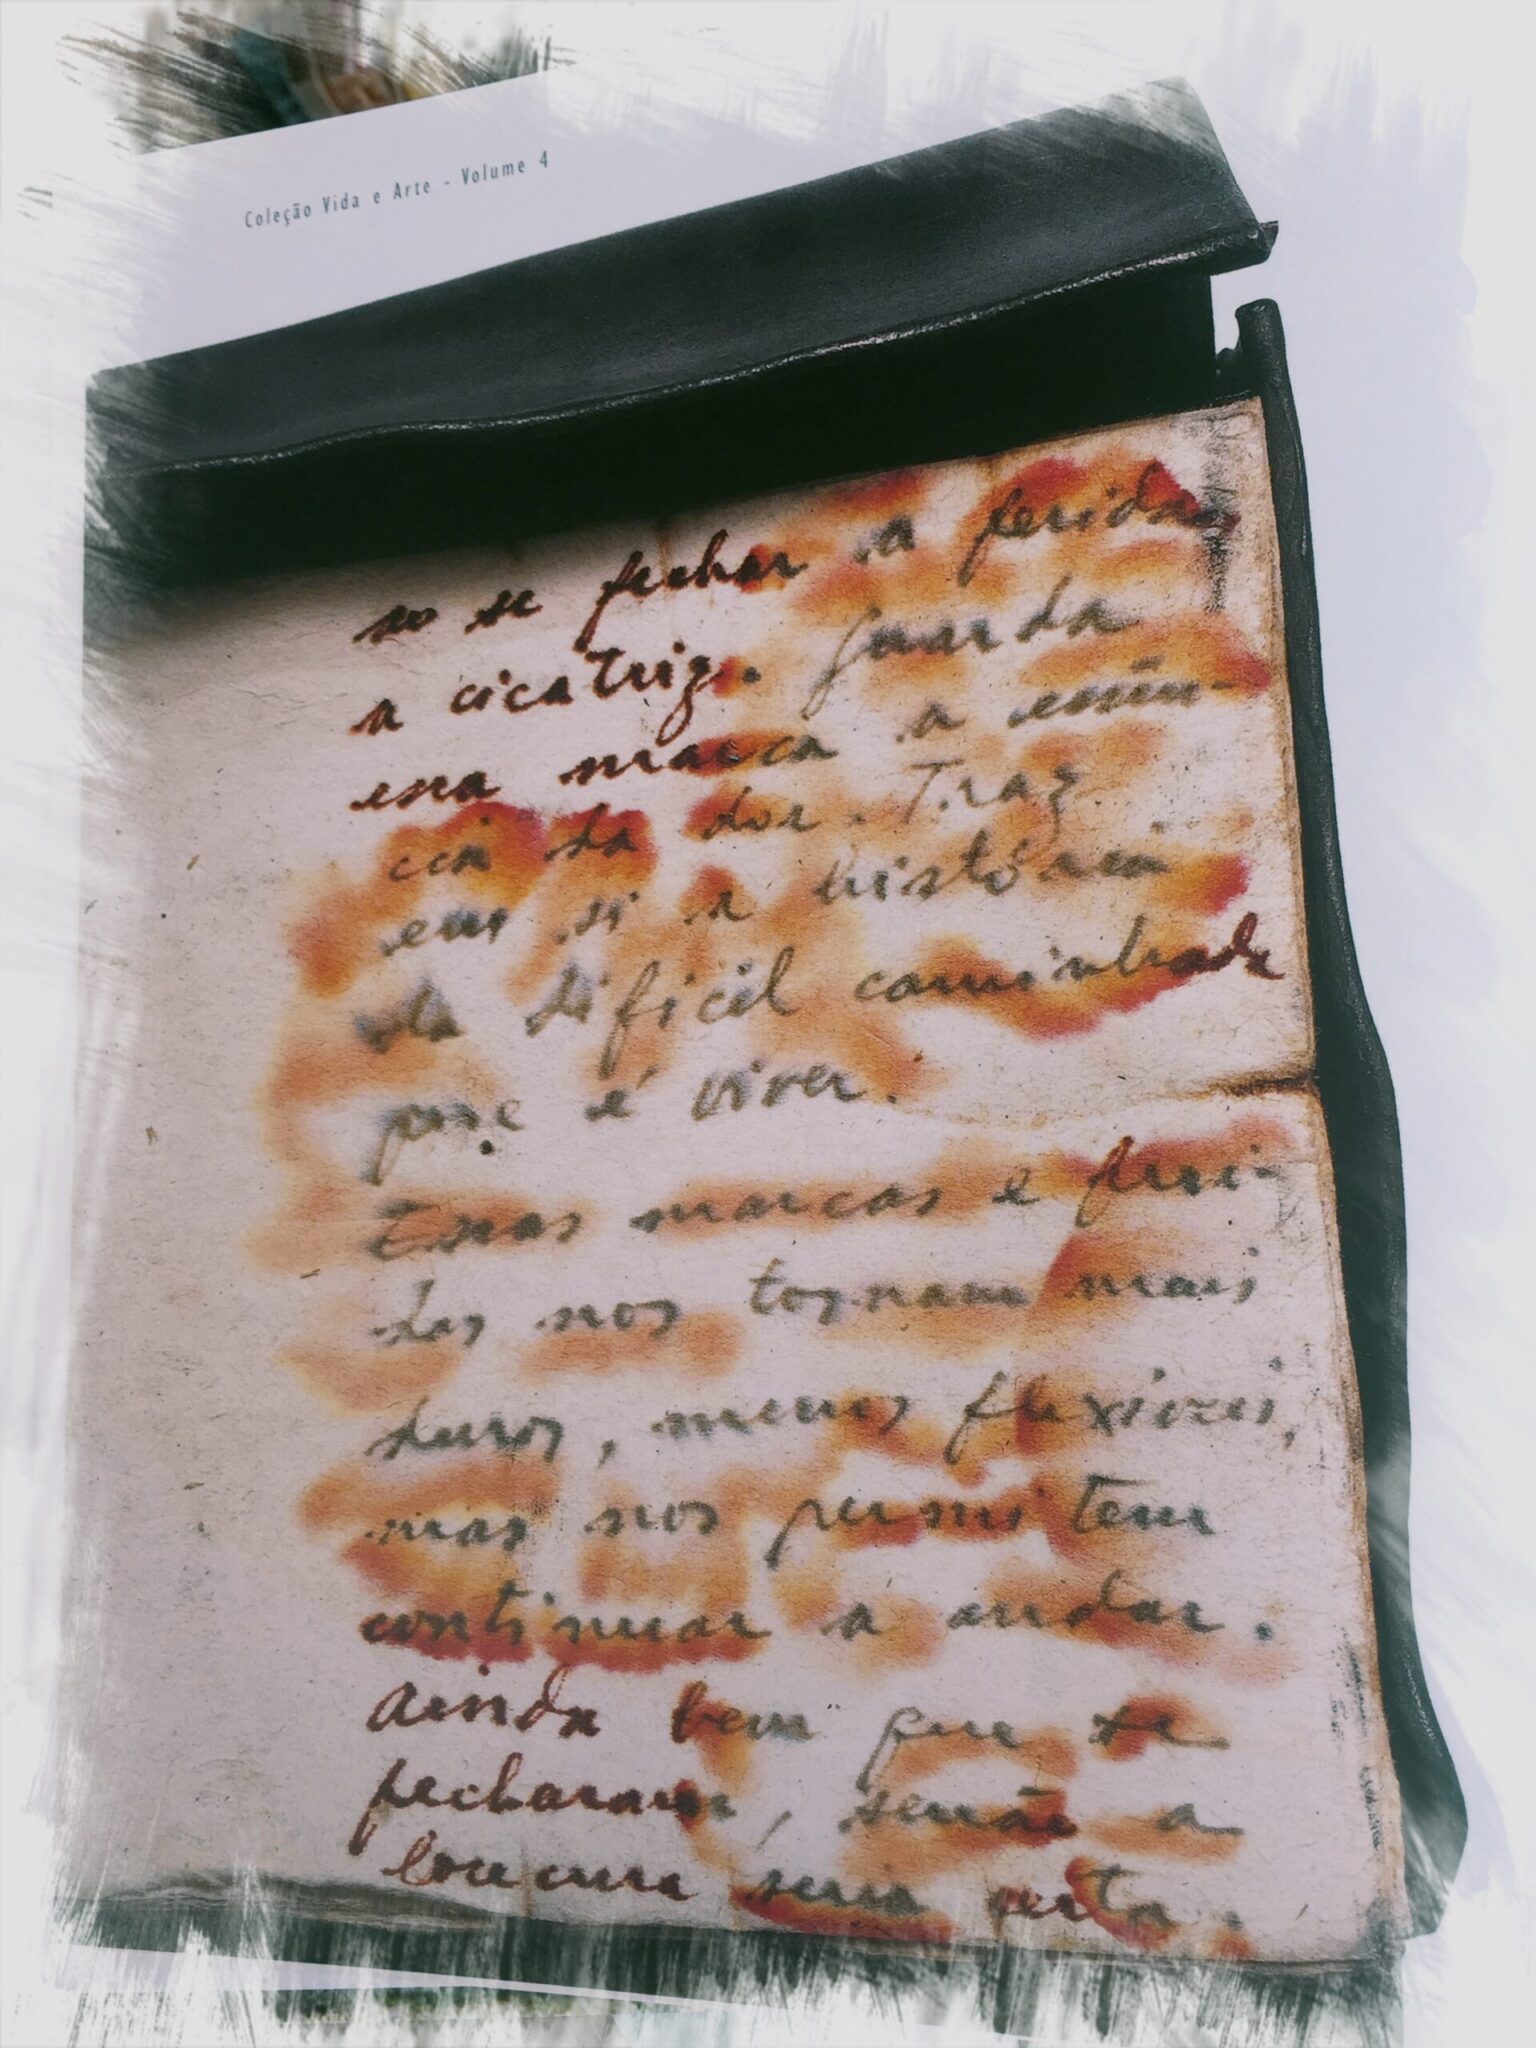 Coleção Vida e Arte - Volume 4
so se fechar a ferida,
a cicatriz. Guarda
essa marca a essên-
cia da dor. Traz
em si a história
da difícil caminhada
que é viver.
Essas marcas e feri-
das nos tornam mais
duros, menos flexíveis,
mas nos permitem
continuar a andar.
Ainda bem que se
fecharam, senão a
loucura seria certa.